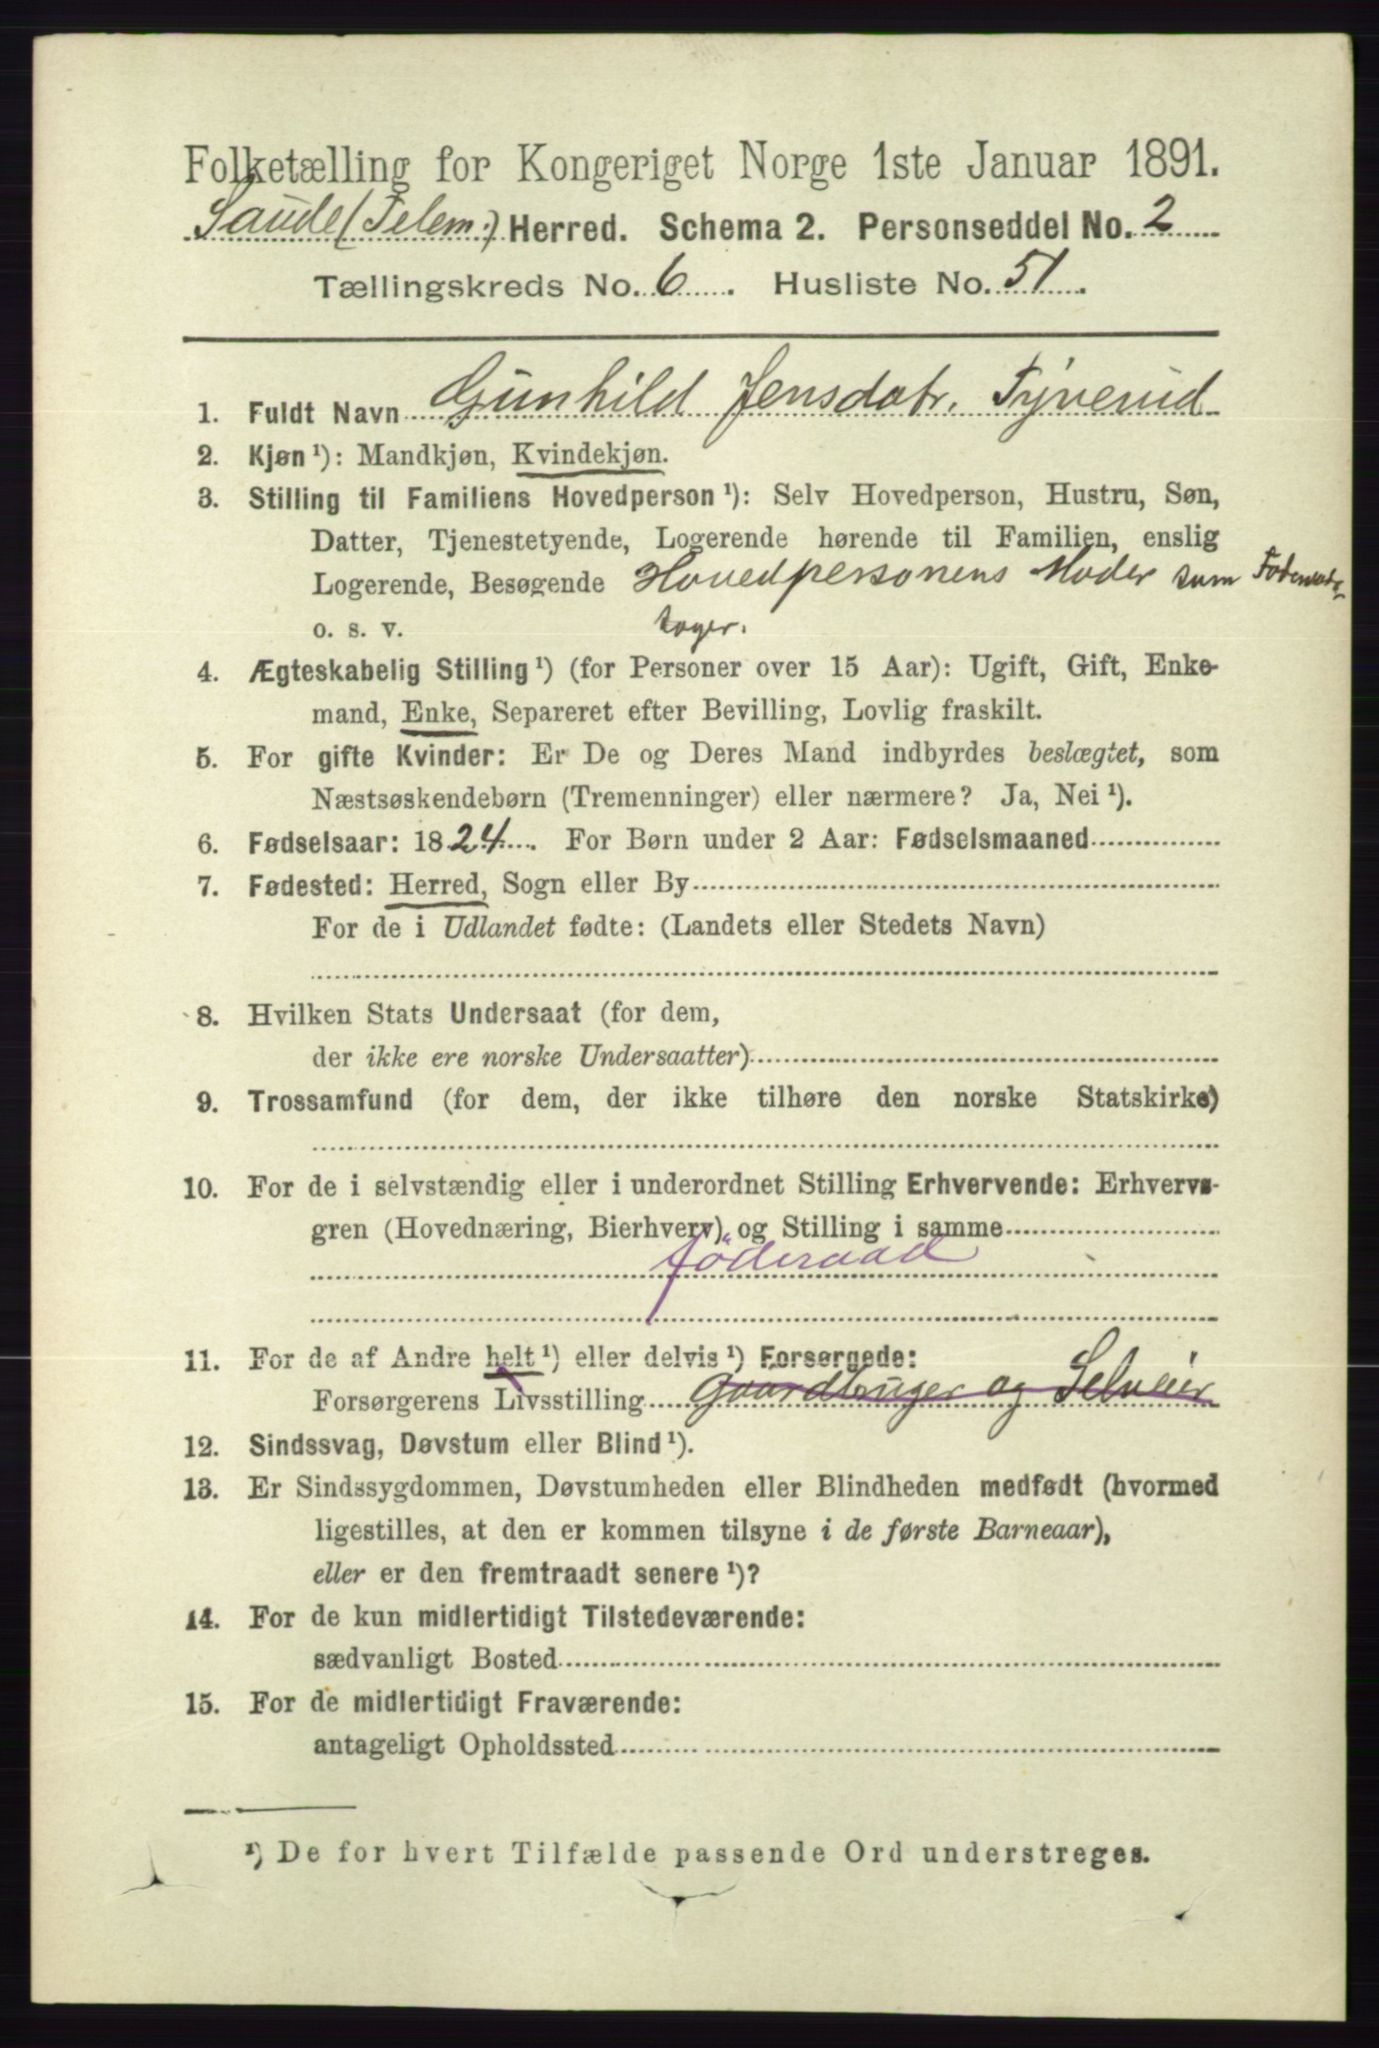 Folketælling for Kongeriget Norge 1ste Januar 1891.
Saude (Telem.) Herred. Schema 2. Personseddel No. 2
Tællingskreds No. 6. Husliste No. 51.
1. Fuldt Navn Gunhild Jensdatr. Tyverud
2. Kjøn ¹): Mandkjøn, Kvindekjøn.
3. Stilling til Familiens Hovedperson ¹): Selv Hovedperson, Hustru, Søn,
Datter, Tjenestetyende, Logerende hørende til Familien, enslig
Logerende, Besøgende Hovedpersonens Moder som Foderaads-
o. s. v. tager.
4. Ægteskabelig Stilling ¹) (for Personer over 15 Aar): Ugift, Gift, Enke-
mand, Enke, Separeret efter Bevilling, Lovlig fraskilt.
5. For gifte Kvinder: Er De og Deres Mand indbyrdes beslægtet, som
Næstsøskendebørn (Tremenninger) eller nærmere? Ja, Nei ¹).
6. Fødselsaar: 1824. For Børn under 2 Aar: Fødselsmaaned
7. Fødested: Herred, Sogn eller By
For de i Udlandet fødte: (Landets eller Stedets Navn)
8. Hvilken Stats Undersaat (for dem,
der ikke ere norske Undersaatter)
9. Trossamfund (for dem, der ikke tilhøre den norske Statskirke)
10. For de i selvstændig eller i underordnet Stilling Erhvervende: Erhvervs-
gren (Hovednæring, Bierhverv) og Stilling i samme
föderaad
11. For de af Andre helt ¹) eller delvis ¹) Forsørgede:
Forsørgerens Livsstilling Gaardbruger og Selveier
12. Sindssvag, Døvstum eller Blind ¹).
13. Er Sindssygdommen, Døvstumheden eller Blindheden medfødt (hvormed
ligestilles, at den er kommen tilsyne i de første Barneaar),
eller er den fremtraadt senere ¹)?
14. For de kun midlertidigt Tilstedeværende:
sædvanligt Bosted
15. For de midlertidigt Fraværende:
antageligt Opholdssted
¹) De for hvert Tilfælde passende Ord understreges.